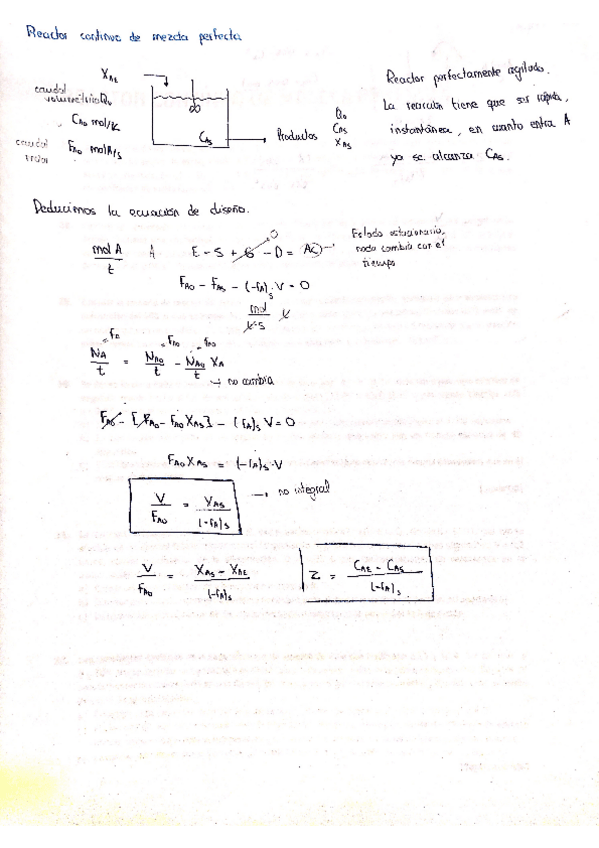 Reactor continuo de mezcla perfecta
X_AE
caudal volumétrico Q₀
C_A0 mol/L
caudal molar F_A0 mol A/s
C_AS
Productos
Q₀
C_AS
X_AS
Reactor perfectamente agitado.
La reacción tiene que ser rápida,
instantánea, en cuanto entra A
ya se alcanza C_AS.
Deducimos la ecuación de diseño.
mol A / t
E - S + G - D = A
0
Estado estacionario,
nada cambia con el
tiempo
F_A0 - F_AS - (-r_A)_S · V = 0
mol / L·s
= F_A = F_A0 = F_A0
N_A / t = N_A0 / t - N_A0 / t X_A
→ no cambia
F_A0 - [F_A0 - F_A0 X_AS] - (r_A)_S V = 0
F_A0 X_AS = (-r_A)_S · V
V / F_A0 = X_AS / (-r_A)_S → no integral
V / F_A0 = X_AS - X_AE / (-r_A)_S
Z = C_AE - C_AS / (-r_A)_S